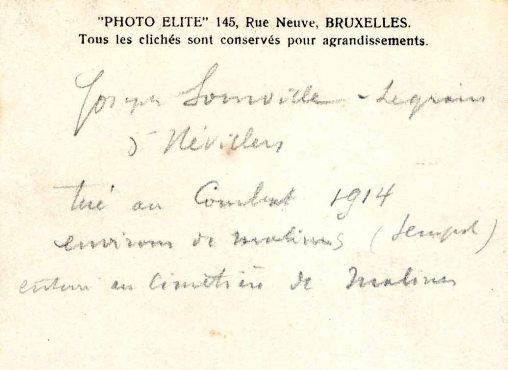 "PHOTO ELITE" 145, Rue Neuve, BRUXELLES.
Tous les clichés sont conservés pour agrandissements.
Joseph Somville - Legrain
Névillers
tué au Combat 1914
environs de malines (Sempst)
enterré au Cimetière de Malines